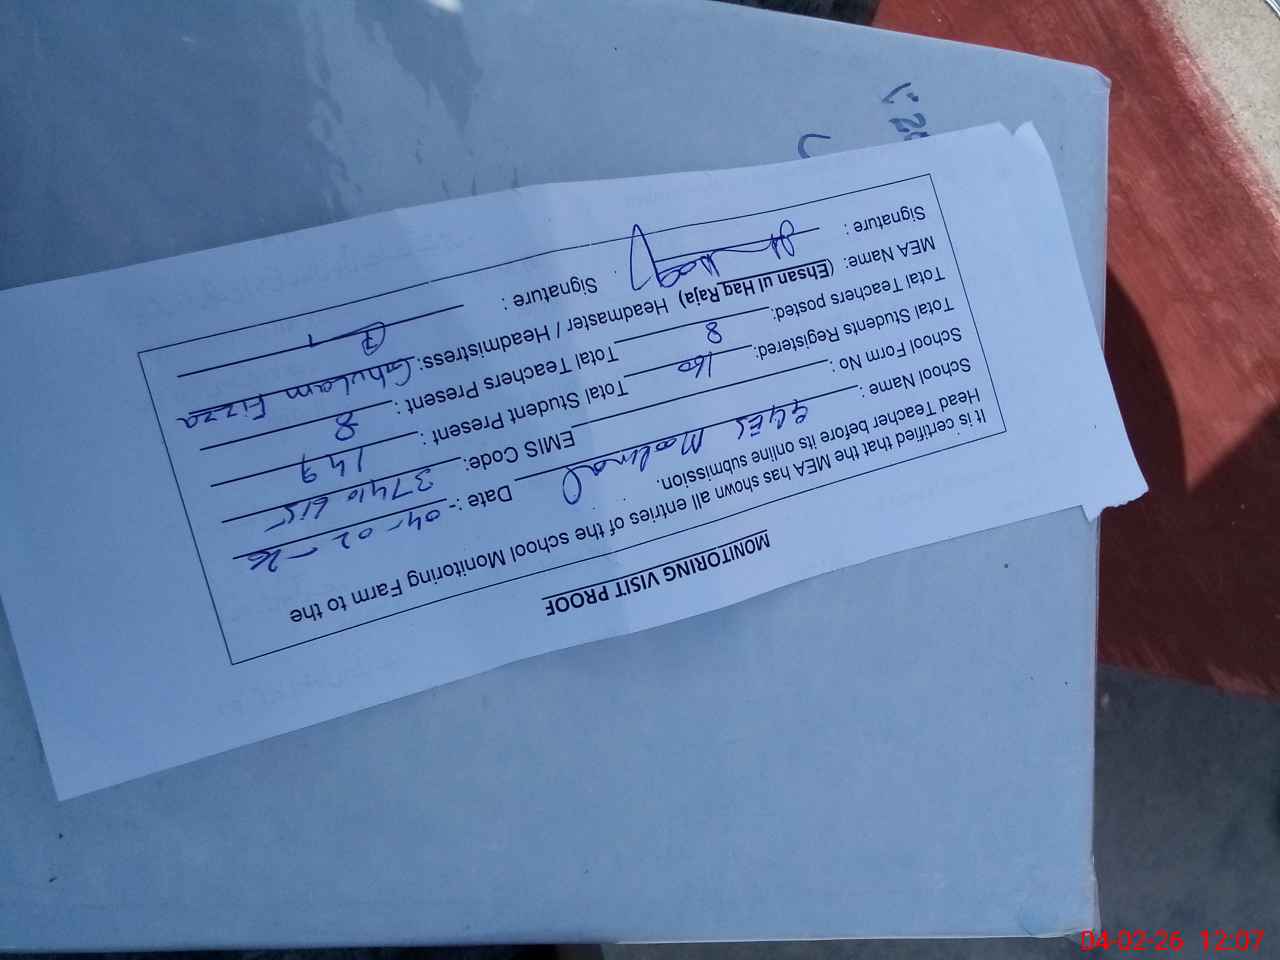 MONITORING VISIT PROOF
It is certified that the MEA has shown all entries of the school Monitoring Farm to the
Head Teacher before its online submission.
School Name : GGES Date :- 04-02-26
School Form No : EMIS Code:
Total Students Registered: 160 Total Student Present : 149
Total Teachers posted: 8 Total Teachers Present : 8
MEA Name: (Ehsan ul Haq Raja) Headmaster / Headmistress: Ghulam Fizza
Signature : Signature :
04-02-26 12:07